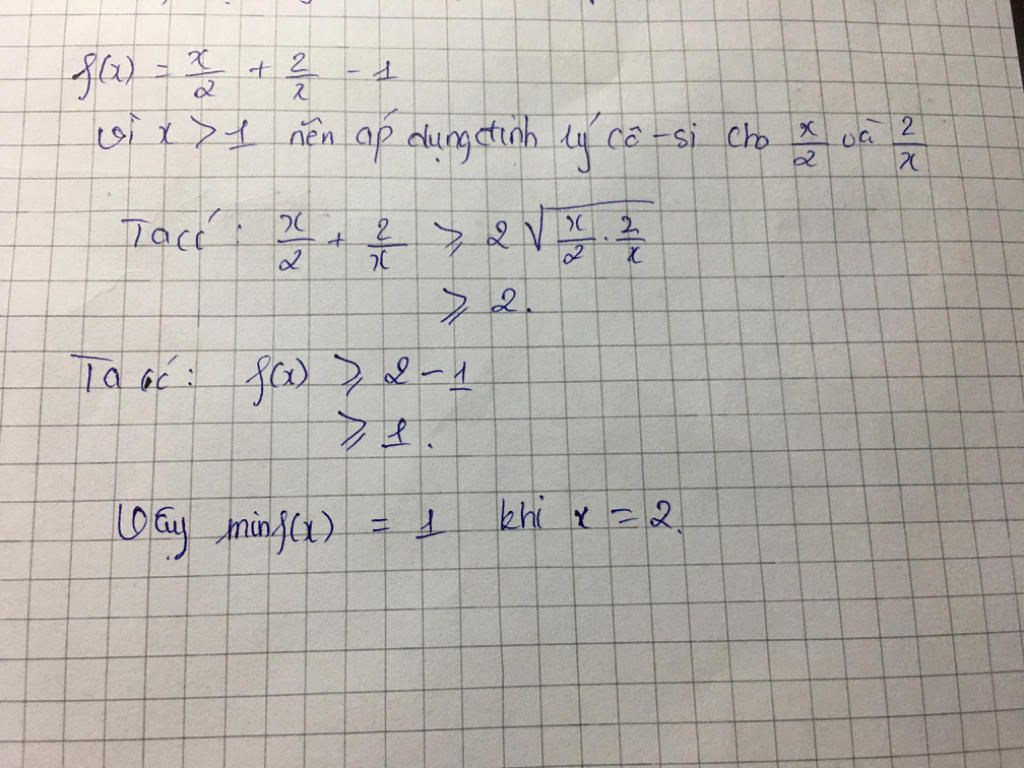 f(x) = x/2 + 2/x - 1
Vì x > 1 nên áp dụng định lý cô-si cho x/2 và 2/x
Ta có: x/2 + 2/x ⩾ 2√(x/2 . 2/x)
⩾ 2.
Ta có: f(x) ⩾ 2 - 1
⩾ 1.
Vậy minf(x) = 1 khi x = 2.